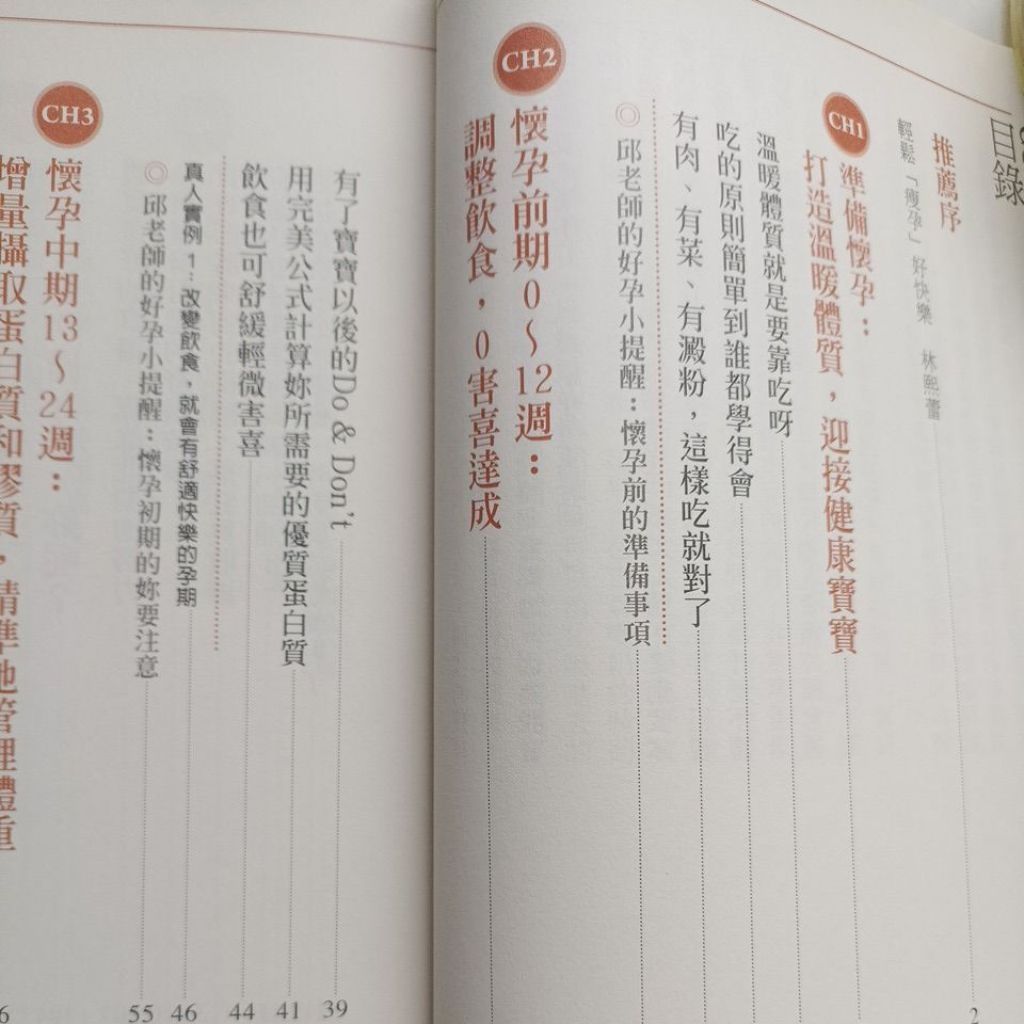 目錄
推薦序
輕鬆「瘦孕」好快樂 林熙蕾
2
CH1
準備懷孕：
打造溫暖體質，迎接健康寶寶
溫暖體質就是要靠吃呀
吃的原則簡單到誰都學得會
有肉、有菜、有澱粉，這樣吃就對了
◎邱老師的好孕小提醒：懷孕前的準備事項
CH2
懷孕前期0～12週：
調整飲食，0害喜達成
有了寶寶以後的Do & Don't 39
用完美公式計算妳所需要的優質蛋白質 41
飲食也可舒緩輕微害喜 44
真人實例1：改變飲食，就會有舒適快樂的孕期 46
◎邱老師的好孕小提醒：懷孕初期的妳要注意 55
CH3
懷孕中期13～24週：
增量攝取蛋白質和膠質，精準地管理體重